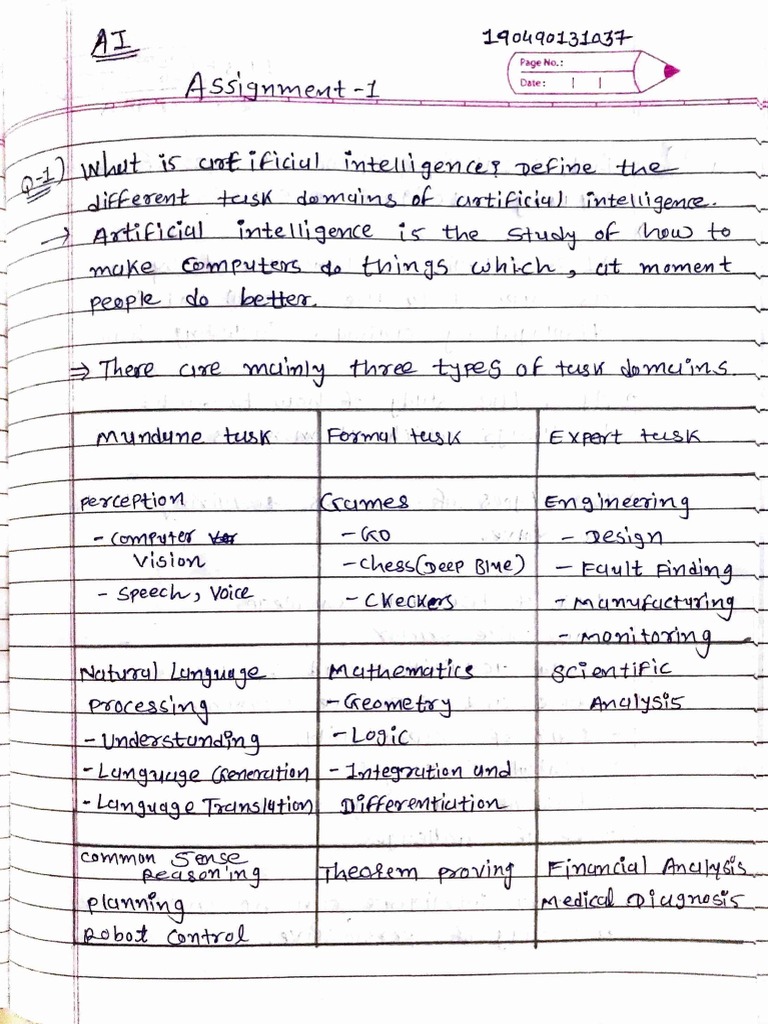 AI
190490131037
Page No.:
Date: | |
Assignment-1
Q-1) What is artificial intelligence? Define the
different task domains of artificial intelligence.
→ Artificial intelligence is the study of how to
make computers do things which, at moment
people do better.
⇒ There are mainly three types of task domains.
Mundane task Formal task Expert task
Perception Games Engineering
- Computer - Go - Design
Vision - Chess (Deep Blue) - Fault Finding
- Speech, Voice - Ckeckers - Manufacturing
- Monitoring
Natural Language Mathematics Scientific
Processing - Geometry Analysis
- Understanding - Logic
- Language Generation - Integration and
- Language Translation Differentiation
Common Sense
Reasoning Theorem proving Financial Analysis
Planning Medical Diagnosis
Robot Control